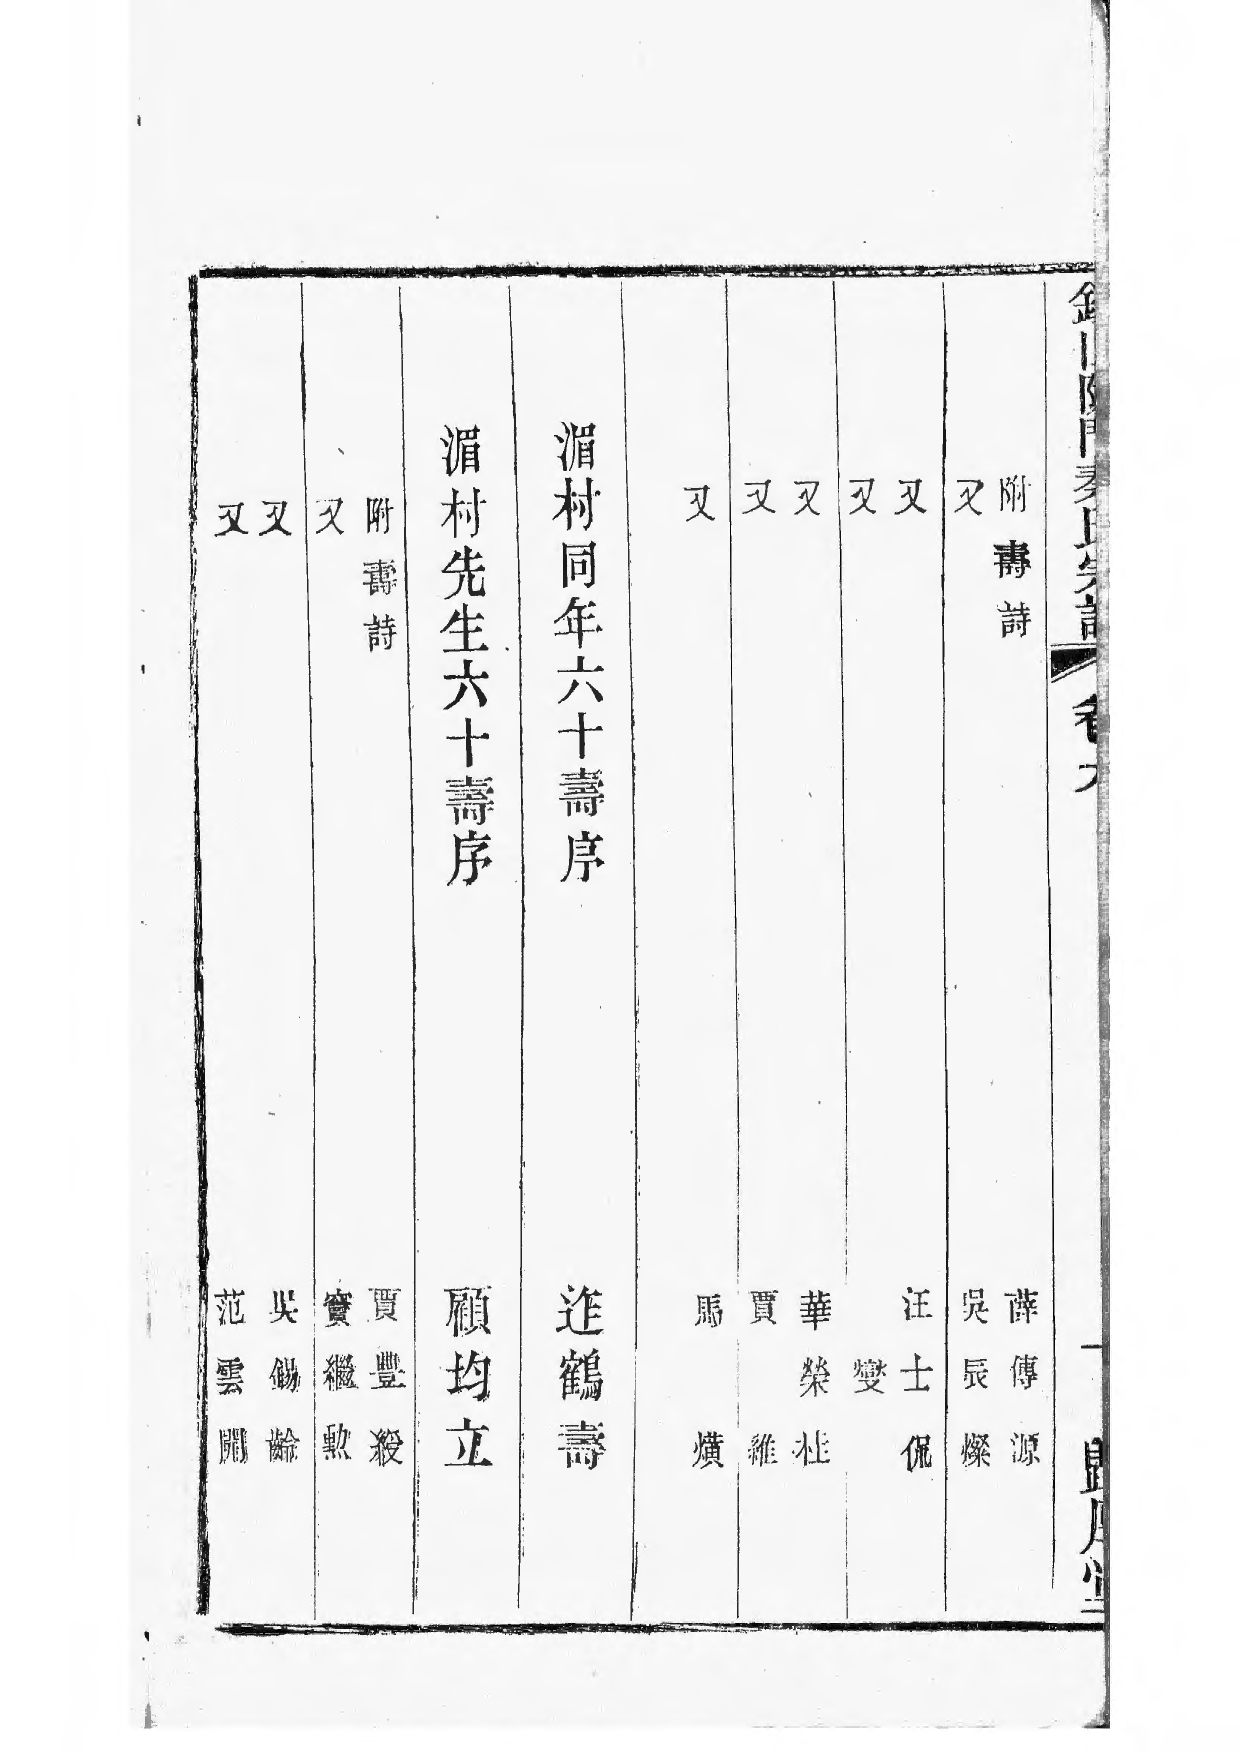 錫山陡門秦氏宗譜 卷九 一 歸厚堂
附壽詩 薛傳源
又 吳辰燦
又 汪士侃
又 燮
又 華榮壯
又 賈維
又 馬熿
湄村同年六十壽序 迮鶴壽
湄村先生六十壽序 顧均立
附壽詩 賈豐
又 竇繼勲
又 吳錫齡
又 范雲開